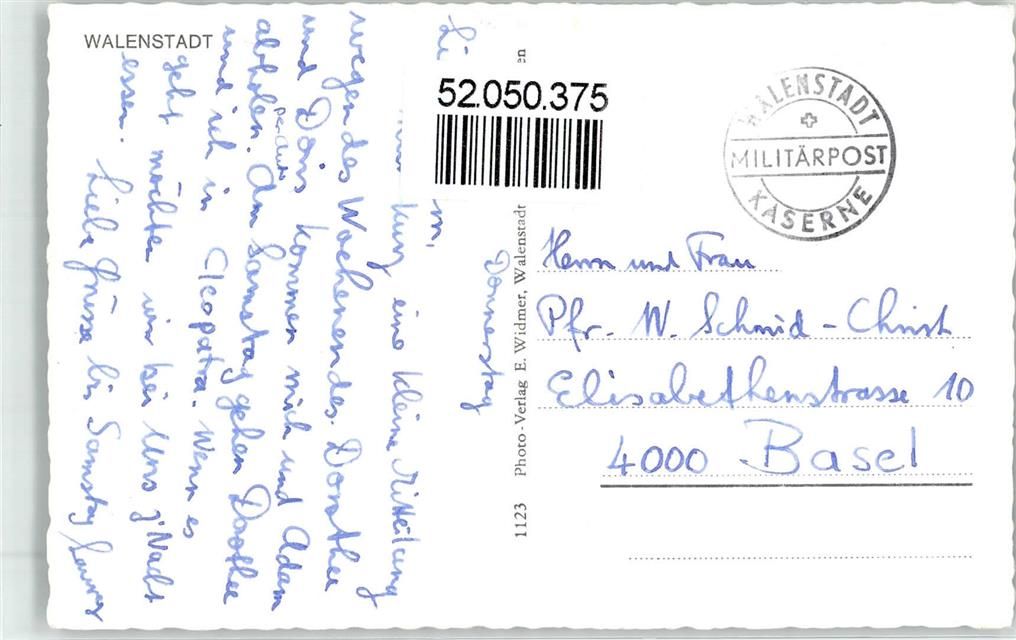 WALENSTADT
Donnerstag
Li
m,
nur kurz eine kleine Mitteilung
wegen des Wochenendes. Dorothee
und Doris kommen mich und Adam
per Auto
abholen. Am Samstag gehen Dorothee
und ich in Cleopatra. Wenn es
geht möchten wir bei Uns z'Nacht
essen.
Liebe Grüsse bis Samstag
52.050.375
en
1123 Photo-Verlag E. Widmer, Walenstadt
WALENSTADT
MILITÄRPOST
KASERNE
Herrn und Frau
Pfr. W. Schmid-Christ
Elisabethenstrasse 10
4000 Basel